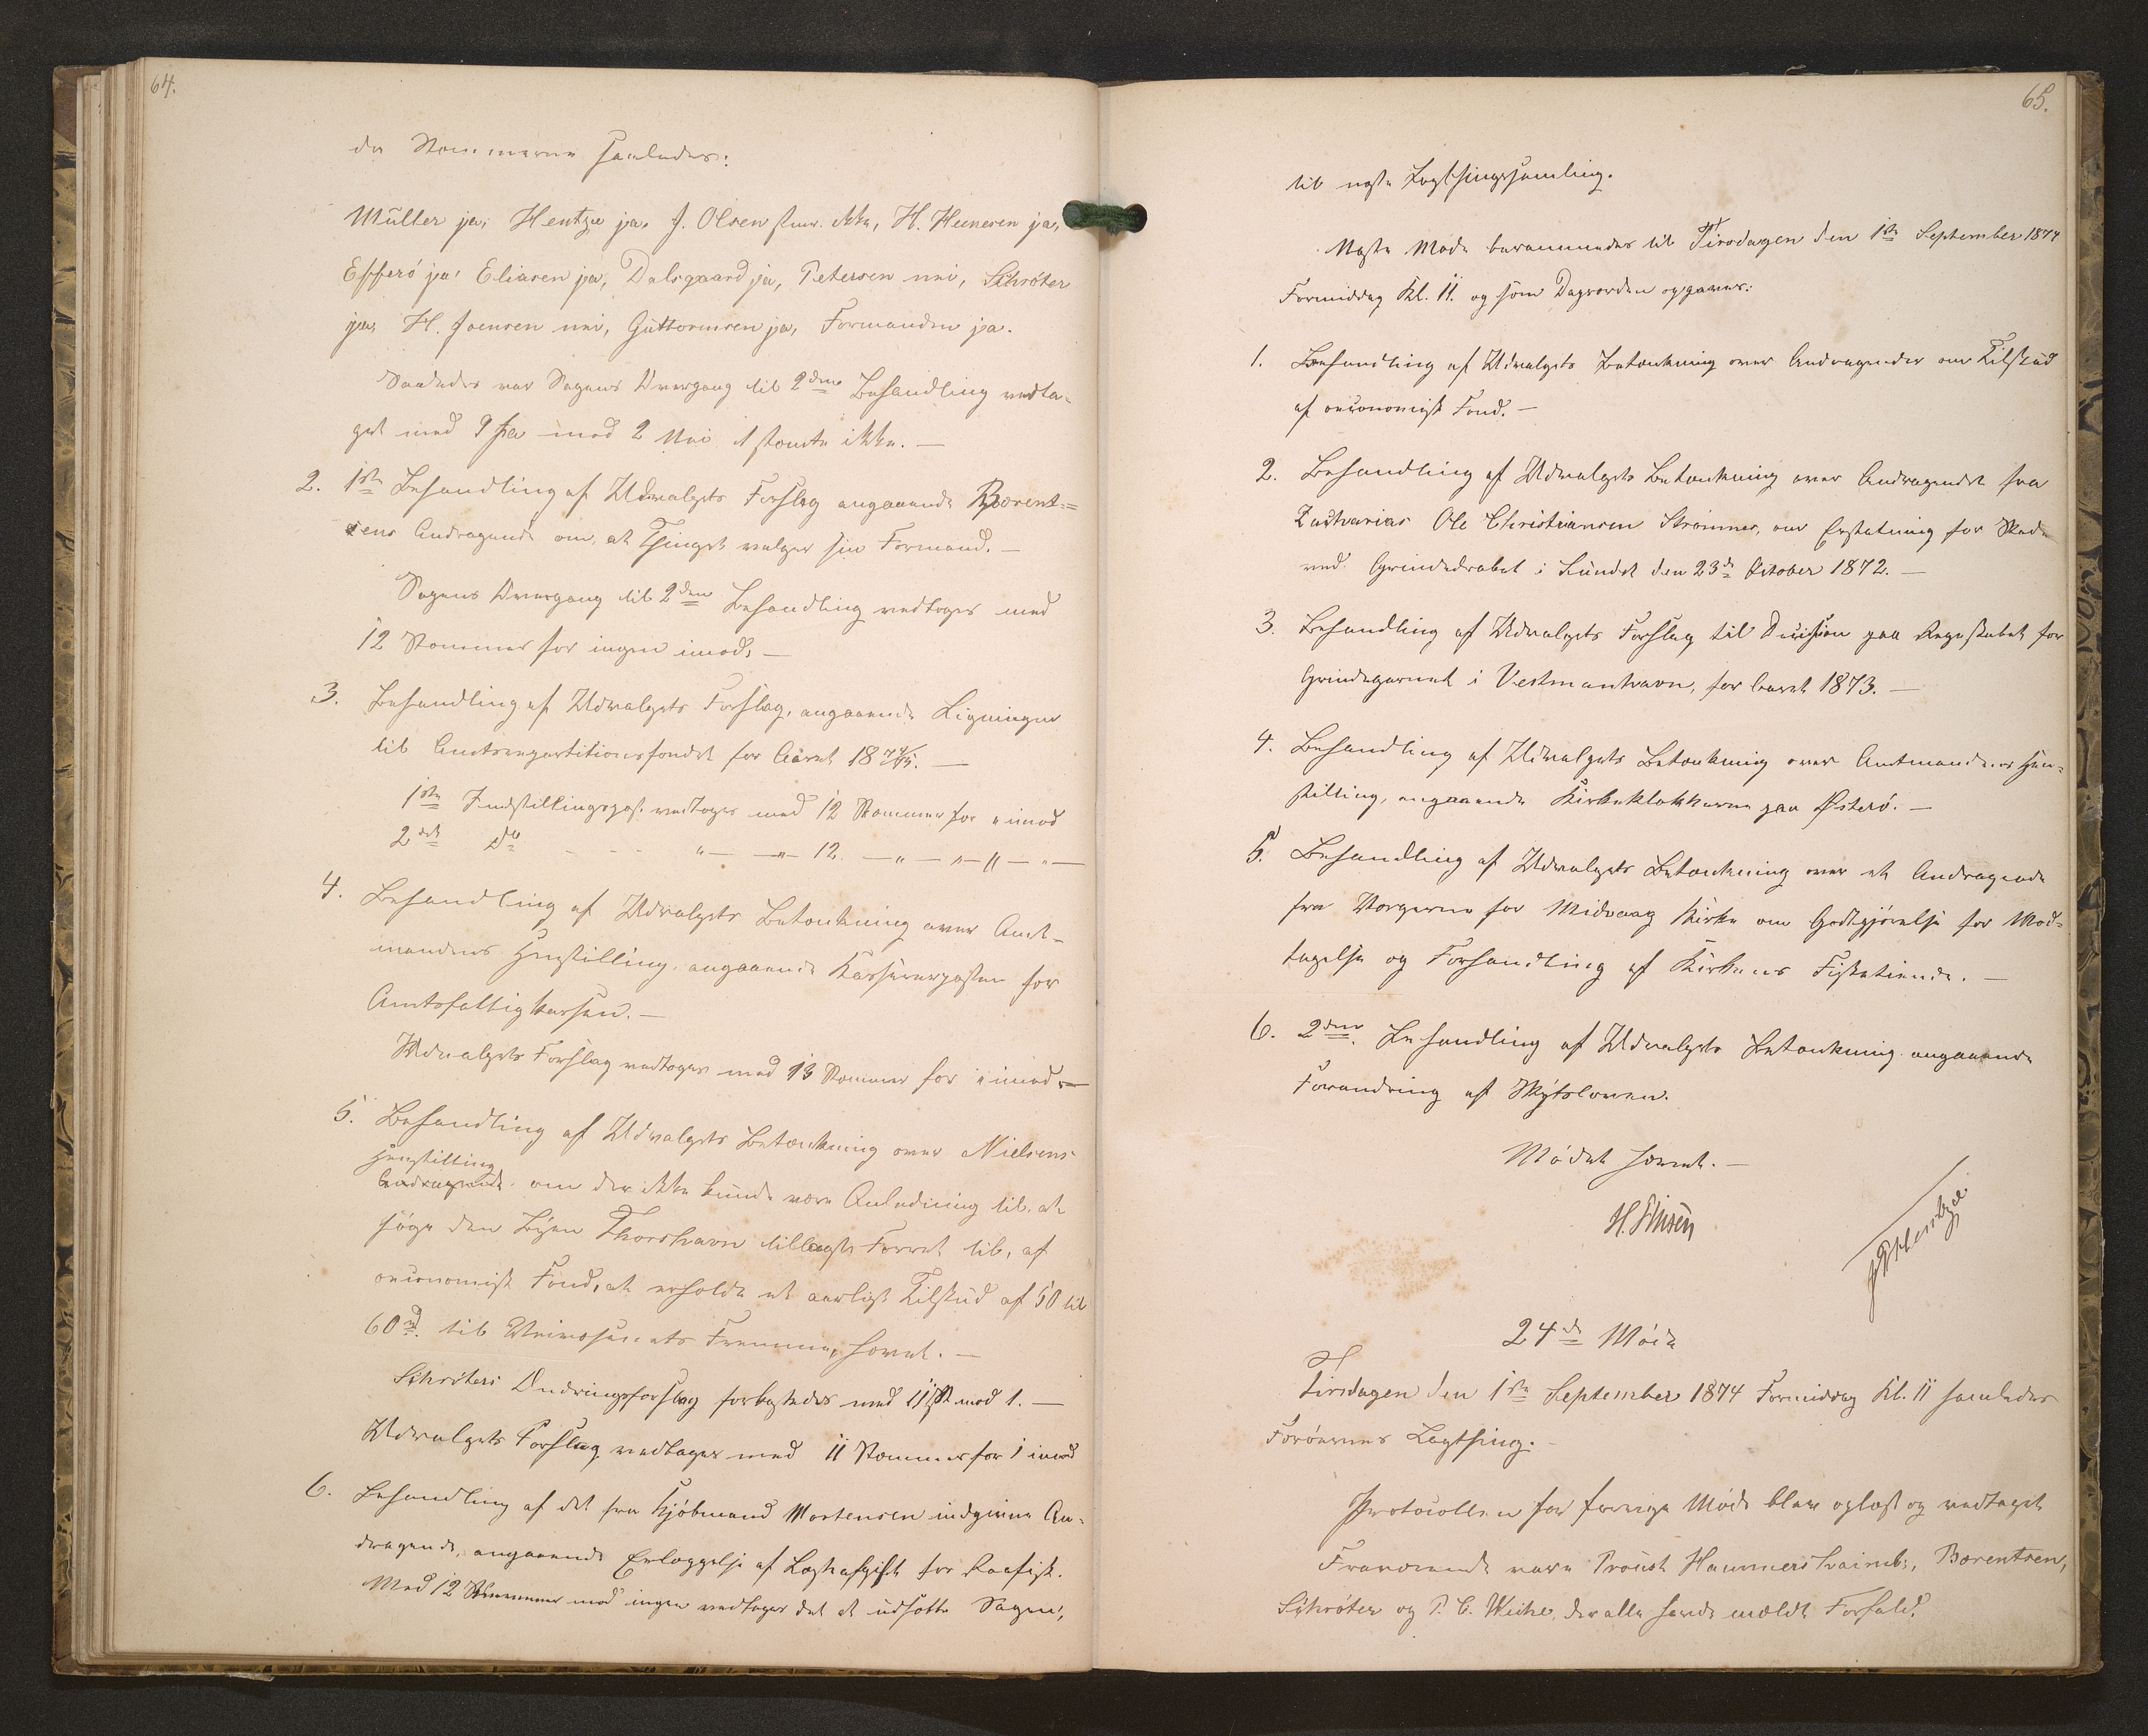 64.
da Stemmerne faldedes:
Müller ja, Hentze ja, J. Olsen stem. ikke, H. Heinesen ja,
Effersö ja, Eliasen ja, Dalsgaard ja, Petersen nei, Schröter
ja, H. Joensen nei, Guttormsen ja, Formanden ja.
Saaledes var Sagens Overgang til 2den Behandling vedta-
get med 9 Ja mod 2 Nei 1 stemte ikke. —
2. 1ste Behandling af Udvalgets Forslag angaaende Bærent-
sens Andragende om, at Thinget vælger sin Formand. —
Sagens Overgang til 2den Behandling vedtoges med
12 Stemmer for ingen imod. —
3. Behandling af Udvalgets Forslag, angaaende Ligningen
til Amtsrepartitionsfondet for Aaret 1874/75. —
1ste Indstillingspost vedtoges med 12 Stemmer for " imod
2det do - - - "— —"— 12. —"— "—"— "—
4. Behandling af Udvalgets Betænkning over Amt-
mandens Henstilling, angaaende Kassererposten for
Amtsfattigkassen. —
Udvalgets Forslag vedtoges med 13 Stemmer for " imod —
5. Behandling af Udvalgets Betænkning over Nielsens
Henstilling
Andragende om der ikke kunde være Anledning til at
søge den Byen Thorshavn tillagte Forret til, af
oeconomisk Fond, at erholde et aarligt Tilskud af 50 til
60 rd. til Veivæsenets Fremme, hævet. —
Schröters Ændringsforslag forkastedes med 11 St. mod 1. —
Udvalgets Forslag vedtoges med 11 Stemmer for 1 imod
6. Behandling af det fra Kjöbmand Mortensen indgivne An-
dragende, angaaende Erlæggelse af Lastafgift for Raafisk.
Med 12 Stemmer mod ingen vedtoges det at udsætte Sagen,
65.
til næste Lagthingssamling.
Næste Møde berammedes til Tirsdagen den 1ste September 1874
Formiddag Kl. 11. og som Dagsorden opgaves:
1. Behandling af Udvalgets Betænkning over Andragender om Tilskud
af oeconomisk Fond. —
2. Behandling af Udvalgets Betænkning over Andragendet fra
Ole Christiansen Strömnes, om Erstatning for Skade
ved Grindedrabet i Sundet den 23de October 1872. —
3. Behandling af Udvalgets Forslag til Decision paa Regnskabet for
Grindegarnet i Vestmanhavn, for Aaret 1873. —
4. Behandling af Udvalgets Betænkning over Amtmandens Hen-
stilling, angaaende Kirkeklokkerne paa Österö. —
5. Behandling af Udvalgets Betænkning over et Andragende
fra Værgerne for Midvaag Kirke om Godtgjörelse for Mod-
tagelse og Forhandling af Kirkens Fisketiende. —
6. 2den Behandling af Udvalgets Betænkning angaaende
Forandring af Skydsloven.
Mödet hævet. —
H. Finsen
24de Möde
Tirsdagen den 1ste September 1874 Formiddag Kl. 11 samledes
Færöernes Lagthing. —
Protocollen for forrige Möde blev oplæst og vedtaget
Fraværende vare Proust Hammershaimb, Bærentsen,
Schröter og P. C. Weihe, der alle havde mældt Forfald.